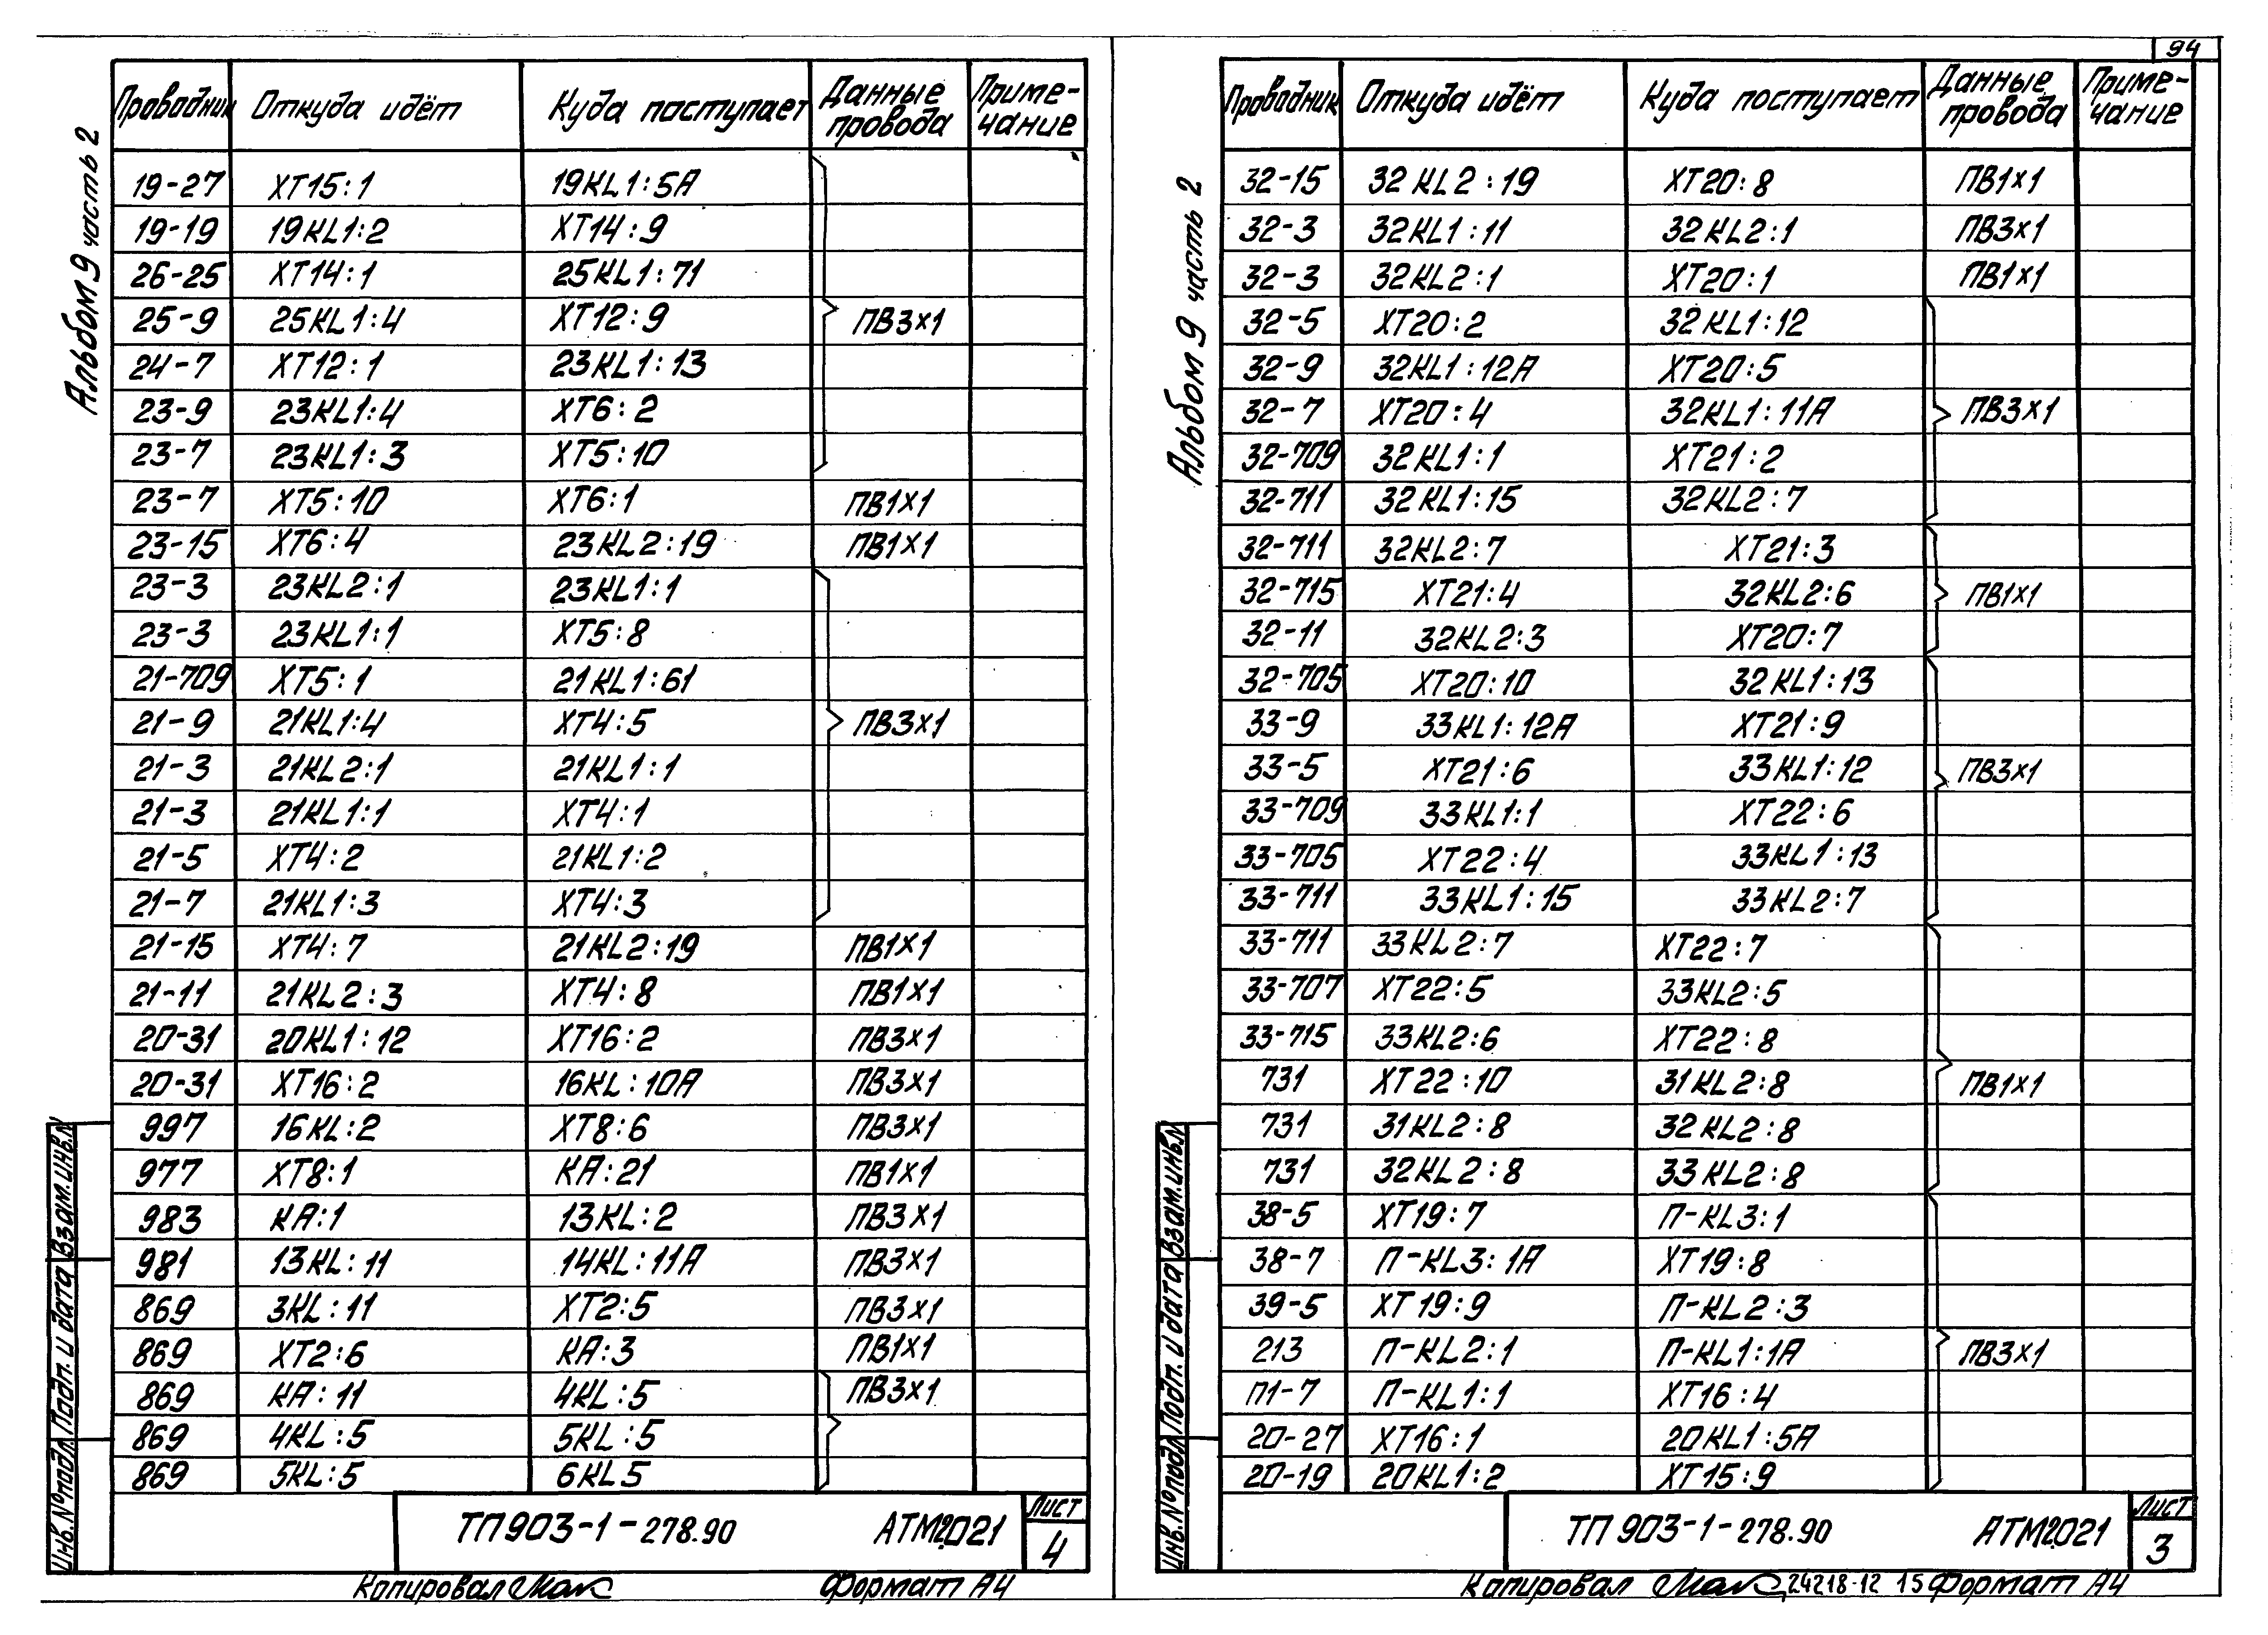 94
Альбом 9 часть 2
Проводник Откуда идёт Куда поступает Данные провода Приме-чание
19-27 ХТ15:1 19KL1:5А
19-19 19KL1:2 ХТ14:9
26-25 ХТ14:1 25KL1:71
25-9 25KL1:4 ХТ12:9 ПВ3х1
24-7 ХТ12:1 23KL1:13
23-9 23KL1:4 ХТ6:2
23-7 23KL1:3 ХТ5:10
23-7 ХТ5:10 ХТ6:1 ПВ1х1
23-15 ХТ6:4 23KL2:19 ПВ1х1
23-3 23KL2:1 23KL1:1
23-3 23KL1:1 ХТ5:8
21-709 ХТ5:1 21KL1:61
21-9 21KL1:4 ХТ4:5 ПВ3х1
21-3 21KL2:1 21KL1:1
21-3 21KL1:1 ХТ4:1
21-5 ХТ4:2 21KL1:2
21-7 21KL1:3 ХТ4:3
21-15 ХТ4:7 21KL2:19 ПВ1х1
21-11 21KL2:3 ХТ4:8 ПВ1х1
20-31 20KL1:12 ХТ16:2 ПВ3х1
20-31 ХТ16:2 16KL:10А ПВ3х1
997 16KL:2 ХТ8:6 ПВ3х1
977 ХТ8:1 КА:21 ПВ1х1
983 КА:1 13KL:2 ПВ3х1
981 13KL:11 14KL:11А ПВ3х1
869 3KL:11 ХТ2:5 ПВ3х1
869 ХТ2:6 КА:3 ПВ1х1
869 КА:11 4KL:5 ПВ3х1
869 4KL:5 5KL:5
869 5KL:5 6KL5
Инв.№подл. Подп. и дата Взам.инв.№
ТП903-1-278.90 АТМ2.021 Лист 4
Копировал Формат А4
Альбом 9 часть 2
Проводник Откуда идёт Куда поступает Данные провода Приме-чание
32-15 32KL2:19 ХТ20:8 ПВ1х1
32-3 32KL1:11 32KL2:1 ПВ3х1
32-3 32KL2:1 ХТ20:1 ПВ1х1
32-5 ХТ20:2 32KL1:12
32-9 32KL1:12А ХТ20:5
32-7 ХТ20:4 32KL1:11А ПВ3х1
32-709 32KL1:1 ХТ21:2
32-711 32KL1:15 32KL2:7
32-711 32KL2:7 ХТ21:3
32-715 ХТ21:4 32KL2:6 ПВ1х1
32-11 32KL2:3 ХТ20:7
32-705 ХТ20:10 32KL1:13
33-9 33KL1:12А ХТ21:9
33-5 ХТ21:6 33KL1:12 ПВ3х1
33-709 33KL1:1 ХТ22:6
33-705 ХТ22:4 33KL1:13
33-711 33KL1:15 33KL2:7
33-711 33KL2:7 ХТ22:7
33-707 ХТ22:5 33KL2:5
33-715 33KL2:6 ХТ22:8
731 ХТ22:10 31KL2:8 ПВ1х1
731 31KL2:8 32KL2:8
731 32KL2:8 33KL2:8
38-5 ХТ19:7 П-KL3:1
38-7 П-KL3:1А ХТ19:8
39-5 ХТ19:9 П-KL2:3
213 П-KL2:1 П-KL1:1А ПВ3х1
П1-7 П-KL1:1 ХТ16:4
20-27 ХТ16:1 20KL1:5А
20-19 20KL1:2 ХТ15:9
Инв.№подл. Подп. и дата Взам.инв.№
ТП903-1-278.90 АТМ2.021 Лист 3
Копировал 24218-12 15 Формат А4